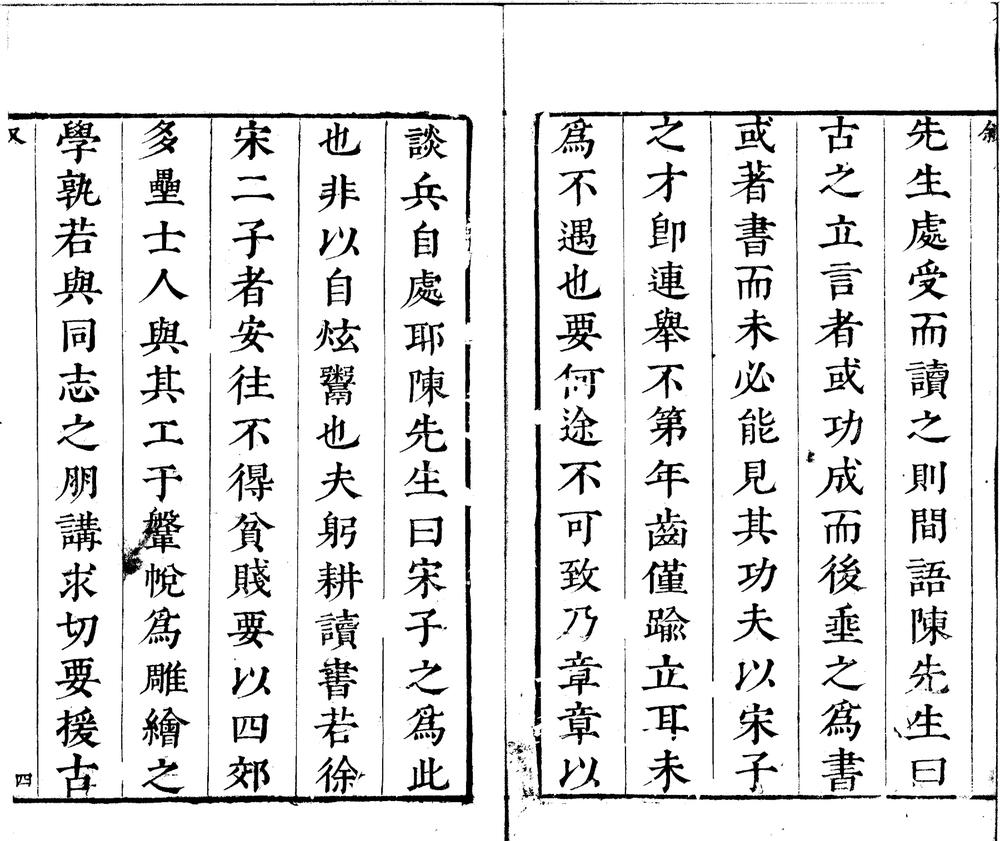 先生處受而讀之則間語陳先生曰
古之立言者或功成而後埀之為書
或著書而未必能見其功夫以宋子
之才卽連舉不第年齒僅踰立耳未
為不遇也要何途不可致乃章章以
談兵自處耶陳先生曰宋子之為此
也非以自炫鬻也夫躬耕讀書若徐
宋二子者安往不得貧賤要以四郊
多壘士人與其工于鞶帨為雕繪之
學孰若與同志之朋講求切要援古
四